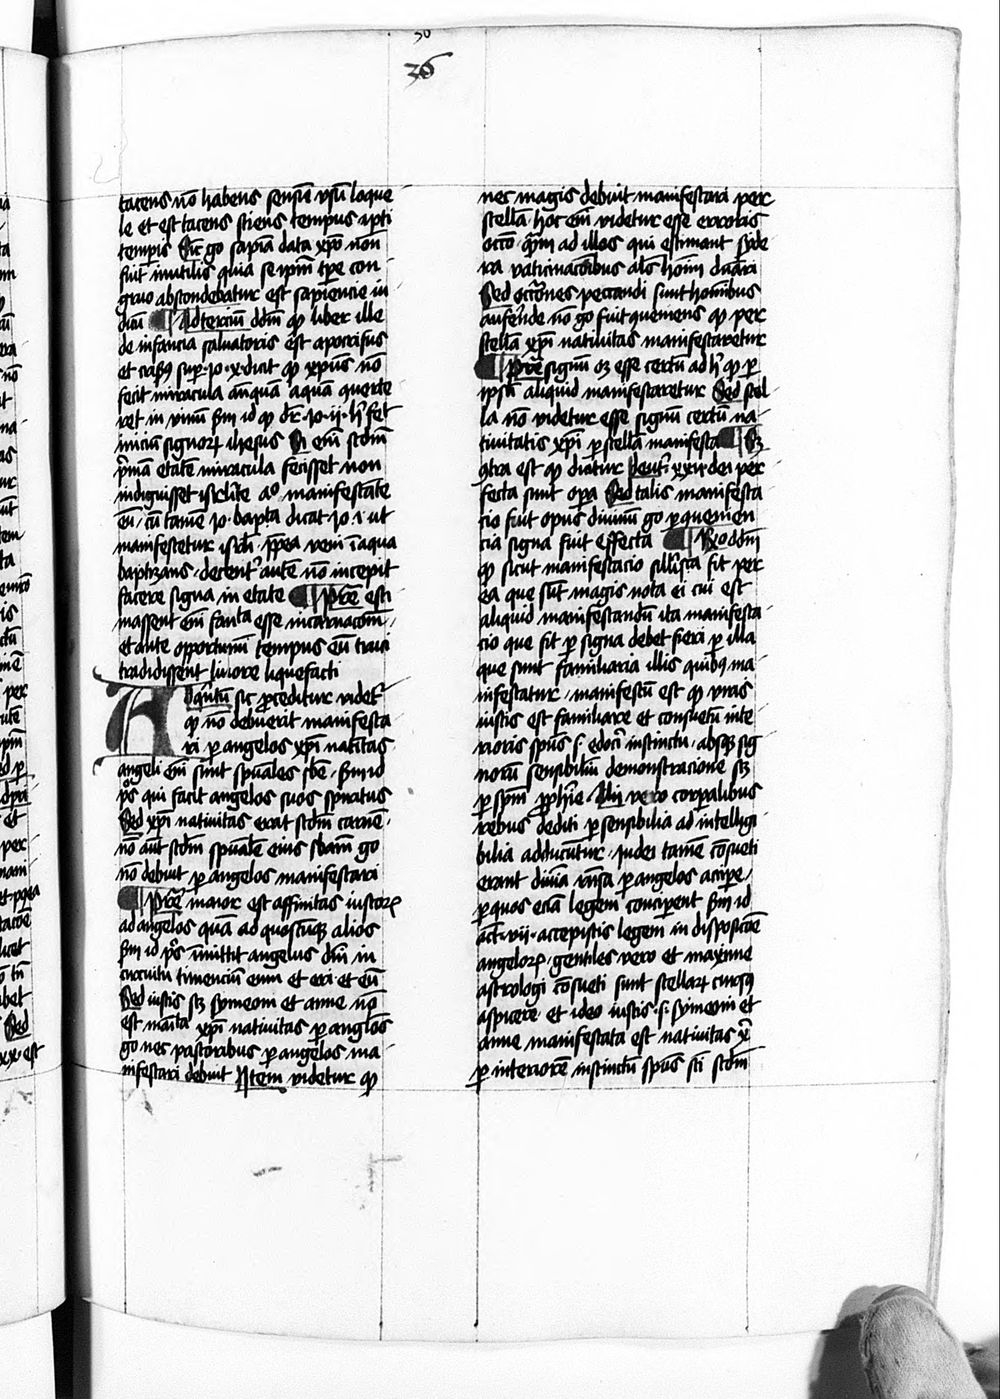 36
tacens nō habens sensū usū loque
le et est tacens sciens tempus apti
temporis Sic go sapiā data xpo non
fuit inutilis quia se ipm tpe con
gruo abscondebatur est sapiencie in
diciū Ad terciū ddm qp liber ille
de infancia salvatoris est apocrifus
et crisꝰ sup Jo x dicit qp xpus nō
fecit miracula anqua aquā querte
ret in vinū sm id qp dr Jo ii h fet
iniciū signorꝝ ihesus Si enī scdm
pmā etatē miracula fecisset non
indiguisset isrlite aº manifestāte
eū cū tamē Jo bapta dicat Jo i ut
manifestetur isrlī ppea veni ī aqua
baptizans decentꝰ autē nō incepit
facere signa in etate Pree esti
massent enī fanta esse incarnacoem
et ante opportunū tempus eū cruci
tradidissent livore liquefacti
Ad qntū sic pceditur videtꝰ
qp nō debuerit manifesta
ri p angelos xpi natītas
angeli enī sunt spuales sbē sm id
ps qui facit angelos suos spiritus
Sed xpi nativitas erat scdm carnē
nō aut scdm spualē eius sbam go
nō debuit p angelos manifestari
Pree maior est affinitas iustorꝝ
ad angelos quā ad quoscūqꝫ alios
sm id ps īmittit angelus dni in
circuitu timenciū eum et eri et eū
Sed iustis sꝫ symeoni et anne nō
est maīta xpi nativitas p anglos
go nec pastoribus p angelos ma
nifestari debuit Item videtur qp
nec magis debuit manifestari per
stellā hoc enī videtur esse erroris
occo quam ad illos qui estimant syde
ra vatinacōibus als hoīm
Sed occōnes peccandi sunt hominibus
auferende nō go fuit queniens qp per
stellā xpi nativitas manifestaretur
Pree signū oꝫ esse certū ad h qp p
ipsū aliquid manifestaretur Sed stel
la nō videtur esse signū certū na
tivitatis xpi p stella manifesta Sꝫ
qtra est qp dicitur Deutꝰ xxxii dei per
fecta sunt opa Sed talis manifesta
cio fuit opus divinū go p quenien
cia signa fuit effecta Rō ddm
qp sicut manifestacio sillistica fit per
ea que sūt magis nota ei cui est
aliquid manifestandū ita manifesta
cio que fit p signa debet fieri p illa
que sunt familiaria illis quibꝫ ma
nifestatur manifestū est qp viris
iustis est familiare et consuetū inte
rioris spus s edoci instinctu absqꝫ sig
norū sensibiliū demonstracione sꝫ
p spm pphie Alii vero corpalibus
rebus dediti p sensibilia ad intelligi
bilia adducūtur judei tamē cōsueti
erant divina rnsa p angelos accipe
p quos eciā legem conceperent sm id
act vii accepistis legem in disposicōe
angelorꝝ gentiles vero et maxime
astrologi cōsueti sunt stellarꝝ cursus
aspicere et ideo iustis s symeoni et
anne manifestata est nativitas xi
p interiorē instinctū spus sci scdm